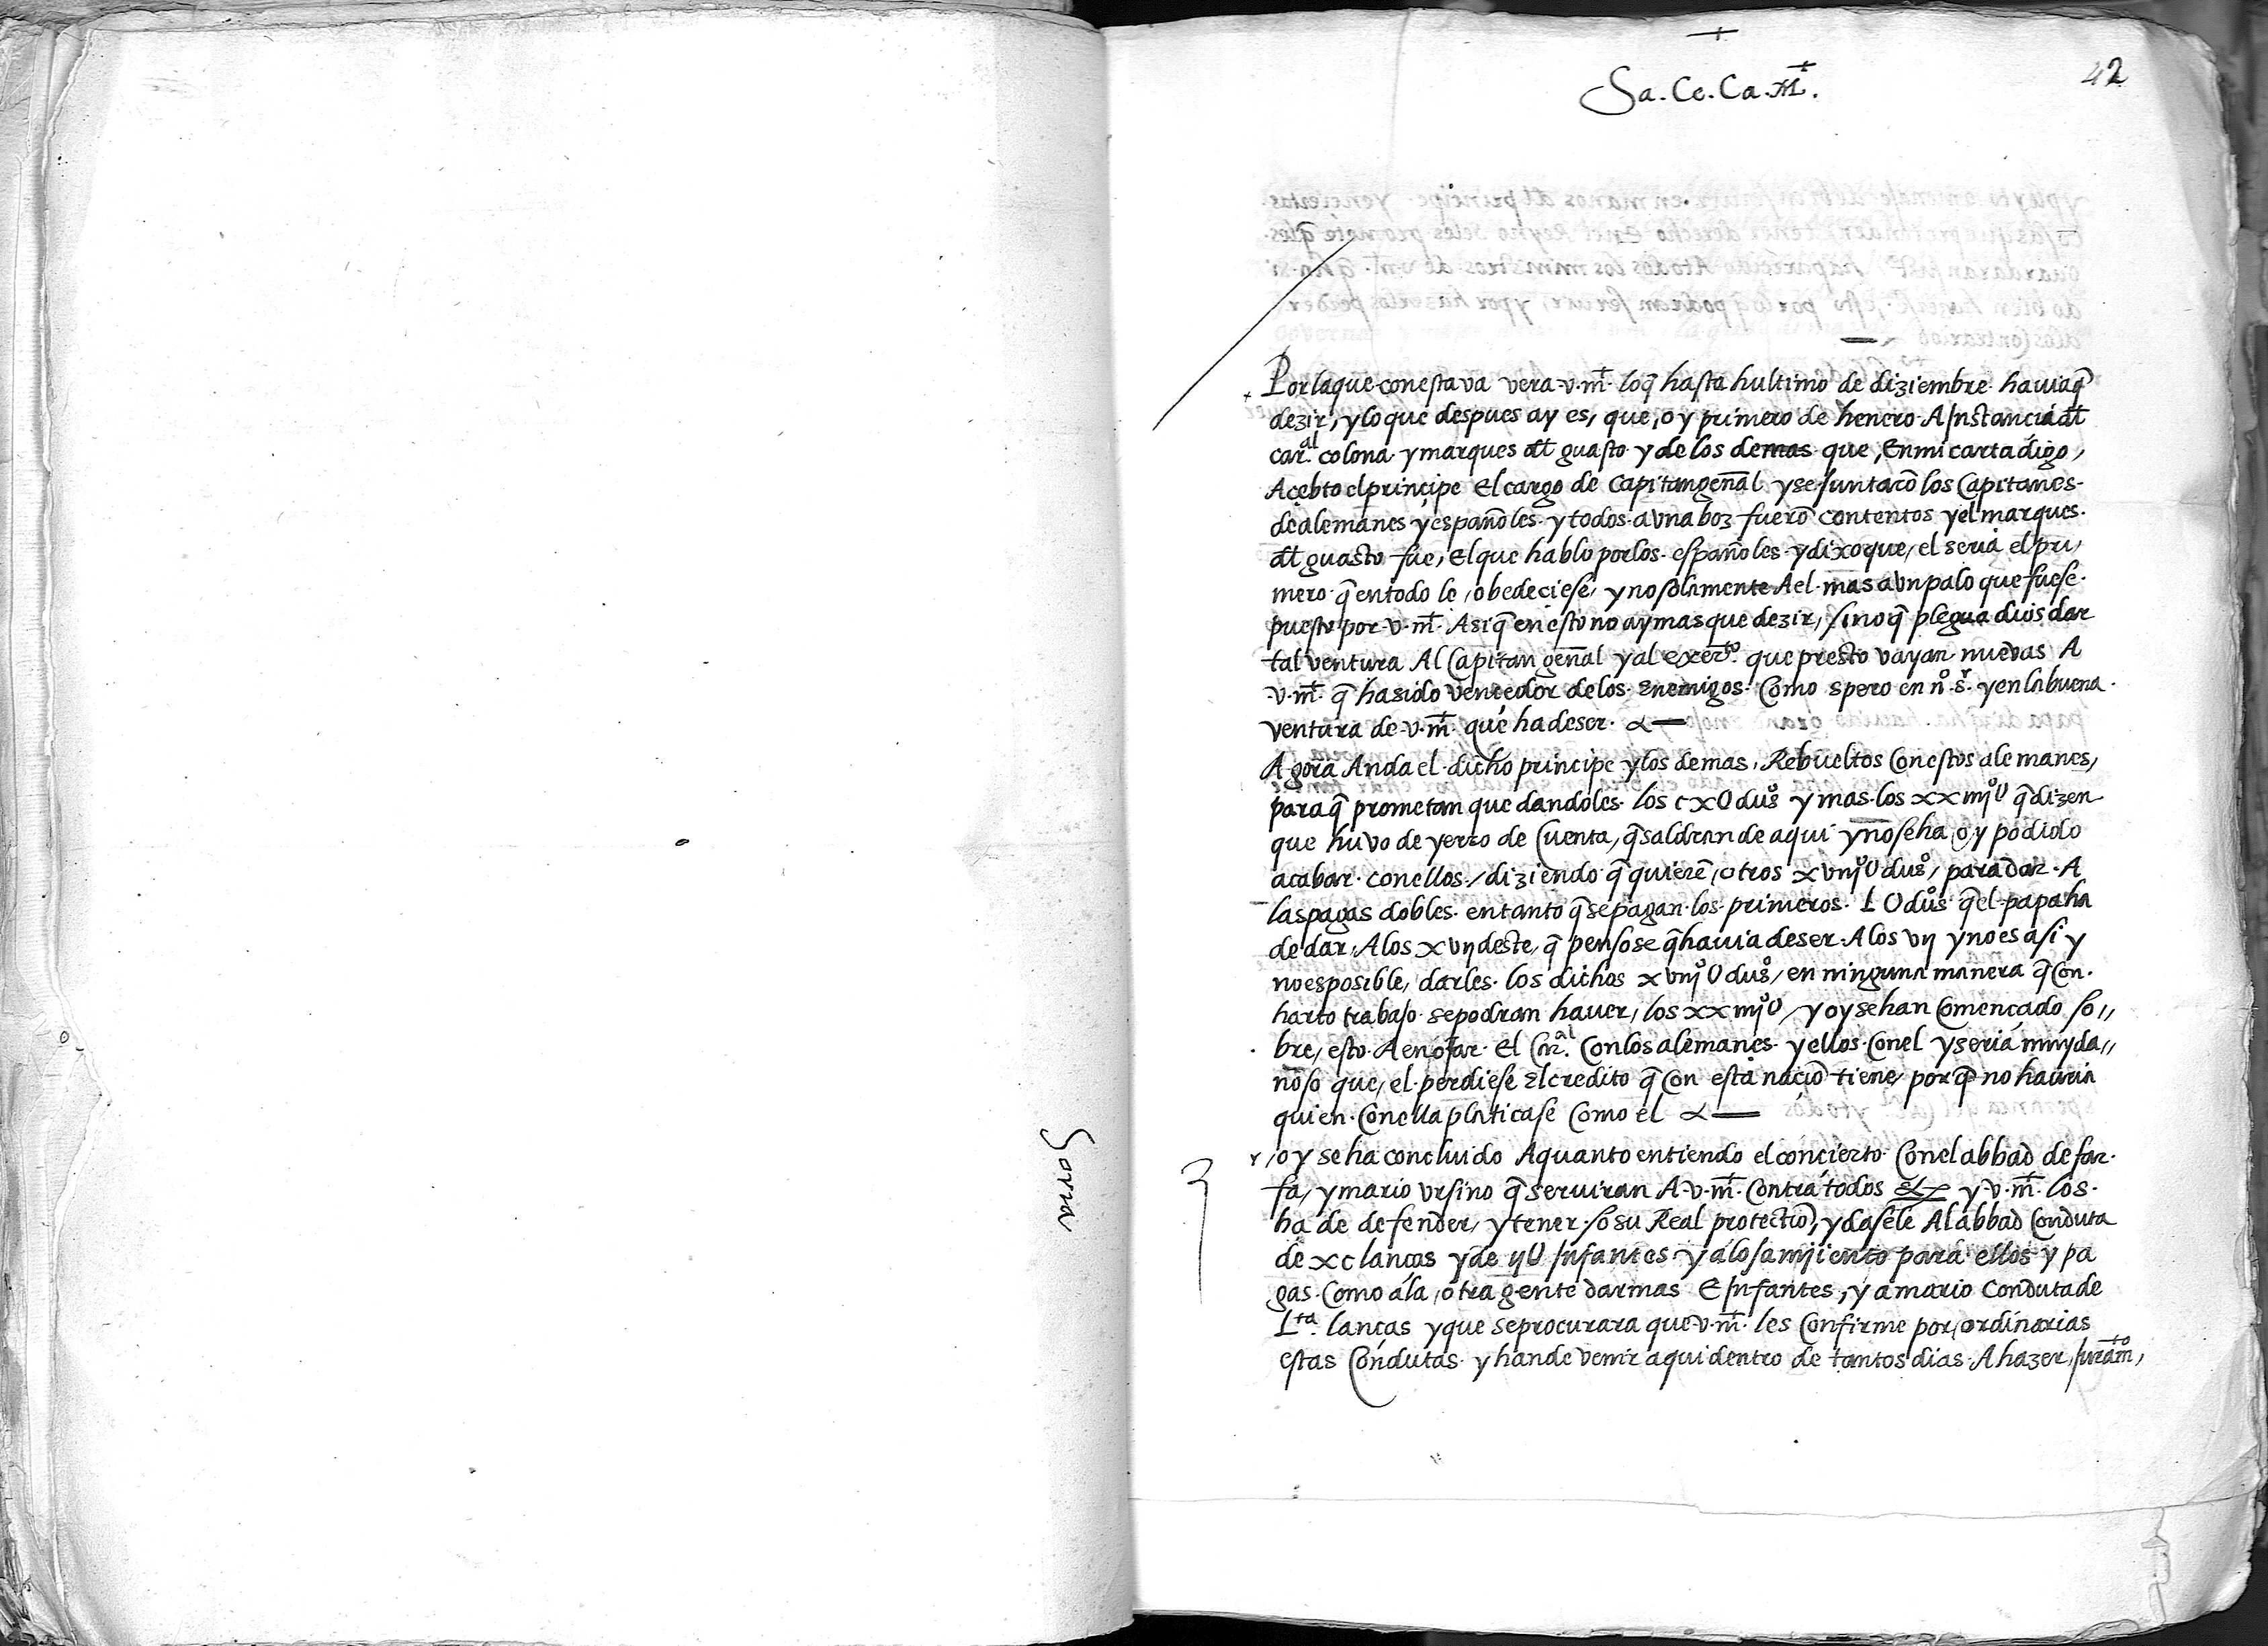 Soria
+
42
Sa. Ce. Ca. M.t
Por la que con esta va vera v. m.t lo q̃ hasta hultimo de diziembre havia q̃
dezir, y lo que despues ay es, que, oy primero de henero A Instancia del
car.al colona y marques del guasto y de los demas que, En mi carta digo,
Acebto el principe El cargo de Capitan geñal y se juntarõ los Capitanes
de alemanes y españoles y todos a una boz fuerõ contentos y el marques
del guasto fue, El que hablo por los españoles y dixo que, el seria el pri
mero q̃ en todo le obedeciese, y no solamente A el mas a un palo que fuese
puesto por v. m.t Asi q̃ en esto no ay mas que dezir, sino q̃ plegua a dios dar
tal ventura Al Capitan geñal y al exerc.to que presto vayan nuevas A
v. m.t q̃ ha sido vencedor de los Enemigos Como spero en n.o s.r y en la buena
ventura de v. m.t que ha de ser
Agora Anda el dicho principe y los demas, Rebueltos Con estos alemanes,
para q̃ prometan que dandoles los cxU duos y mas los xxiiijoU q̃ dizen
que huvo de yerro de Cuenta, q̃ saldran de aqui y no se ha oy podido
acabar con ellos, diziendo q̃ quierẽ, otros xviijoU duos, para dar A
las pagas dobles en tanto q̃ se pagan los primeros LU duos q̃ el papa ha
de dar, A los xvij deste, q̃ pensose q̃ havia de ser A los vij y no es asi y
no es posible, darles los dichos xviijoU duos, en ninguna manera q̃ Con
harto trabajo se podran haver, los xxiiijoU, y oy se han Comencado so
bre, esto A enojar El Car.al Con los alemanes y ellos Con el y seria muy da
ñoso que, el perdiese El credito q̃ Con esta naciõ tiene, por q̃ no havria
quien Con ella platicase Como el
oy se ha concluido A quanto entiendo el concierto Con el abbad de far
fa, y mario ursino q̃ serviran A v. m.t Contra todos y v. m.t los
ha de defender, y tener so su Real protectiõ, y dasele Al abbad Conduta
de xc lancas y de ijU Infantes y alojamiento para ellos y pa
gas Como a la, otra gente darmas E Infantes, y a mario Conduta de
L.ta lancas y que se procurara que v. m.t les Confirme por, ordinarias
estas Condutas y han de venir aqui dentro de tantos dias A hazer, juram.to,